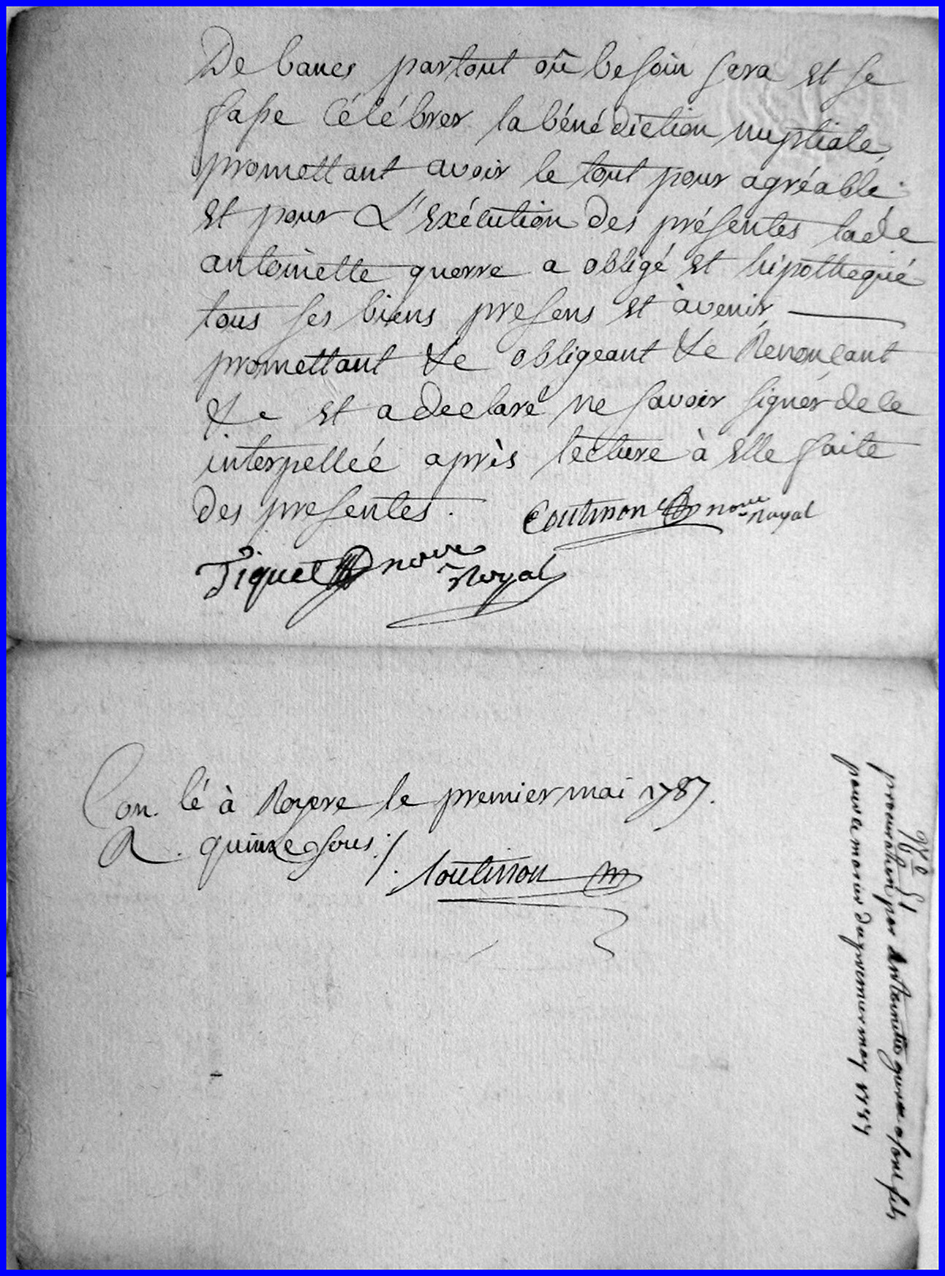 De bancs partout où besoin sera et se
fasse célébrer la bénédiction nuptiale,
promettant avoir le tout pour agréable.
et pour L'exécution des présentes lade
antoinette guerre a obligé et hipothequé
tous ses biens presens et àvenir
promettant &c obligeant &c Renonçant
&c et a declaré ne savoir signer de ce
interpellée après lecture à elle faite
des presentes. Coutisson nore Royal
Tiquet nore Royal
Con. lé à Royere le premier mai 1787.
R. quinze sous ./.
Coutisson
procuration par Antoinette guerre a son fils
pour le marier du premier may 1787